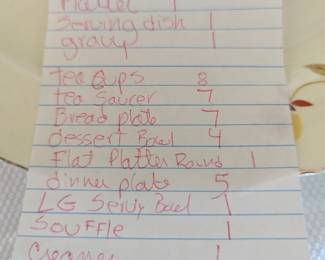 Platter 1
Serving dish 1
gravy 1
tea Cups 8
tea Saucer 7
Bread plate 7
dessert Bowl 4
Flat Platter Round 1
dinner plate 5
LG Servig Bowl 1
SOUFFLE 1
Creamer 1